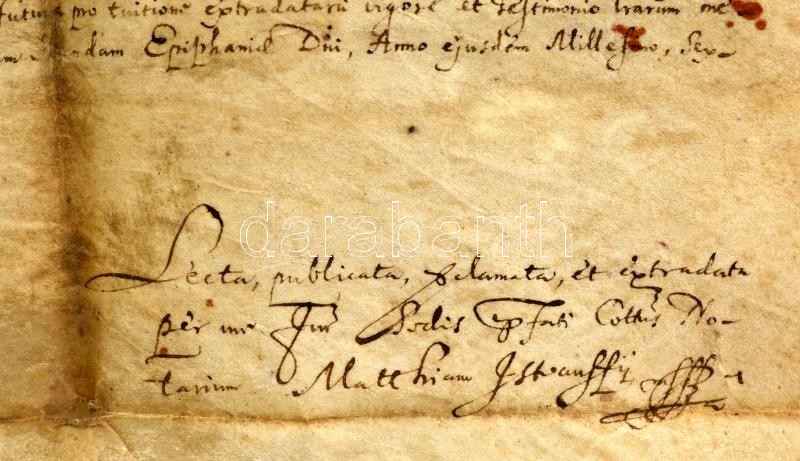 futura pro tuitione extradatarū vigore et testimonio lrarum me
dam Epiphaniæ Dni, Anno ejusdem Millesimo, Sex-
darabanth
Lecta, publicata, pclamata, et extradata
per me Jur Sedis pfati Cottus No-
tarium Matthiam Istvanffÿ